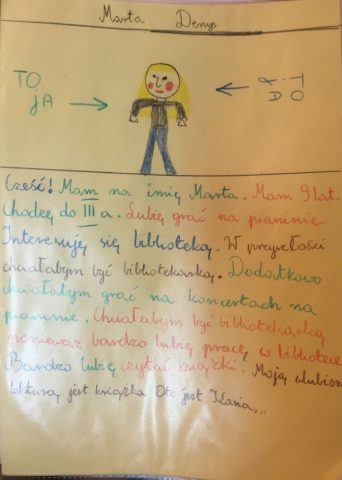 Marta Denys
TO
JA
TO
JA
Cześć! Mam na imię Marta. Mam 9 lat.
Chodzę do III a. Lubię grać na pianinie.
Interesuję się biblioteką. W przyszłości
chciałabym być bibliotekarką. Dodatkowo
chciałabym grać na koncertach na
pianinie. Chciałabym być bibliotekarką
ponieważ bardzo lubię pracę w bibliotece
Bardzo lubię czytać książki. Moją ulubion
lekturą jest książka Oto jest Kasia...